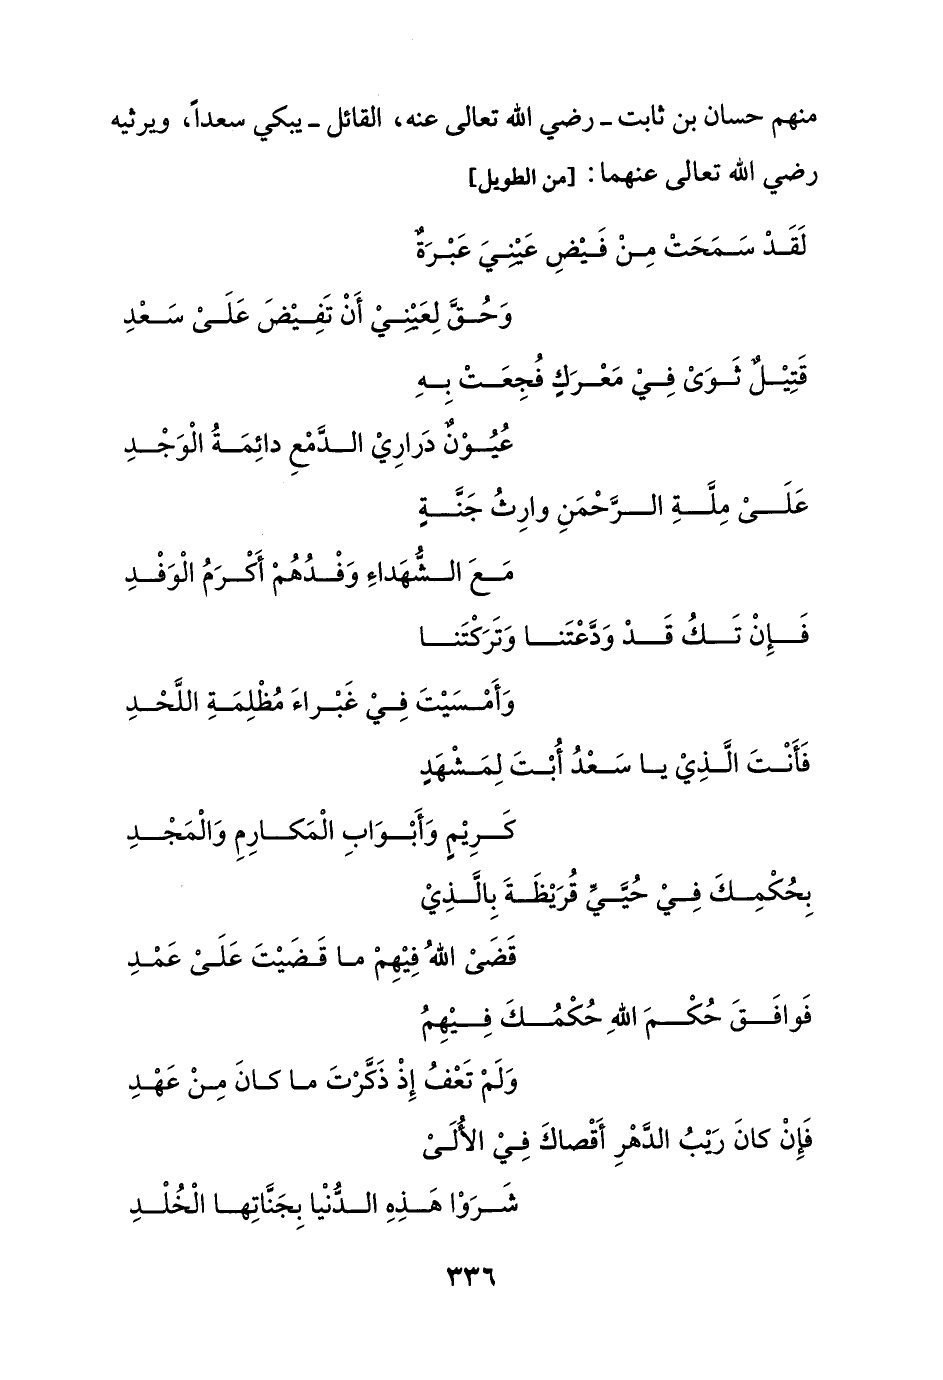 منهم حسان بن ثابت ـ رضي الله تعالى عنه، القائل ـ يبكي سعداً، ويرثيه
رضي الله تعالى عنهما: [من الطويل]
لَقَدْ سَمَحَتْ مِنْ فَيْضِ عَيْنِيَ عَبْرَةٌ
وَحُقَّ لِعَيْنِيْ أَنْ تَفِيْضَ عَلَىْ سَعْدِ
قَتِيْلٌ ثَوَىْ فِيْ مَعْرَكٍ فُجِعَتْ بِهِ
عُيُوْنٌ دَرارِيْ الدَّمْعِ دائِمَةُ الْوَجْدِ
عَلَىْ مِلَّةِ الرَّحْمَنِ وارِثُ جَنَّةٍ
مَعَ الشُّهَداءِ وَفْدُهُمْ أَكْرَمُ الْوَفْدِ
فَإِنْ تَكُ قَدْ وَدَّعْتَنا وَتَرَكْتَنا
وَأَمْسَيْتَ فِيْ غَبْراءَ مُظْلِمَةِ اللَّحْدِ
فَأَنْتَ الَّذِيْ يا سَعْدُ أُبْتَ لِمَشْهَدٍ
كَرِيْمٍ وَأَبْوَابِ الْمَكارِمِ وَالْمَجْدِ
بِحُكْمِكَ فِيْ حُيَّيِّ قُرَيْظَةَ بِالَّذِيْ
قَضَىْ اللهُ فِيْهِمْ ما قَضَيْتَ عَلَىْ عَمْدِ
فَوافَقَ حُكْمَ اللهِ حُكْمُكَ فِيْهِمُ
وَلَمْ تَعْفُ إِذْ ذَكَّرْتَ ما كانَ مِنْ عَهْدِ
فَإِنْ كانَ رَيْبُ الدَّهْرِ أَقْصاكَ فِيْ الأُلَىْ
شَرَوْا هَذِهِ الدُّنْيا بِجَنَّاتِها الْخُلْدِ
٣٣٦